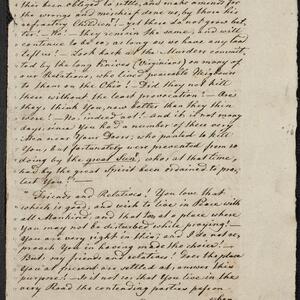 thas been obliged to settle, and make amends for
the wrongs and mischief done us, by these his
refractory children! — yet these do not grow bet-
ter! No! — they remain the same, and will
continue to be so, as long as we have any land
left us! — Look back at the Murders commit-
ted by the long Knives (Virginians) on many of
our Relations, who lived peaceable Neighbours
to them on the Ohio! — Did they not kill
them without the least provocation! — Are
they, think You, now better than they then
were! — No, indeed not! — and it is not many
days since You had a number of these very
Men near Your Doors, who panted to kill
You, but fortunately were prevented from so
doing by the great Sun, who, at that time,
had by the great Spirit been ordained to pro-
tect You!
Friends and Relatives! You love that
which is good, and wish to live in Peace with
all Mankind, and that too, at a place where
You may not be disturbed while praying! —
You are very right in this; and I do not re-
proach You in having made the choice! —
But my friends and relatives! Does the place
You at present are settled at, answer this
purpose! — Is it not so, that You live in the
very Road the contending parties pass on
when